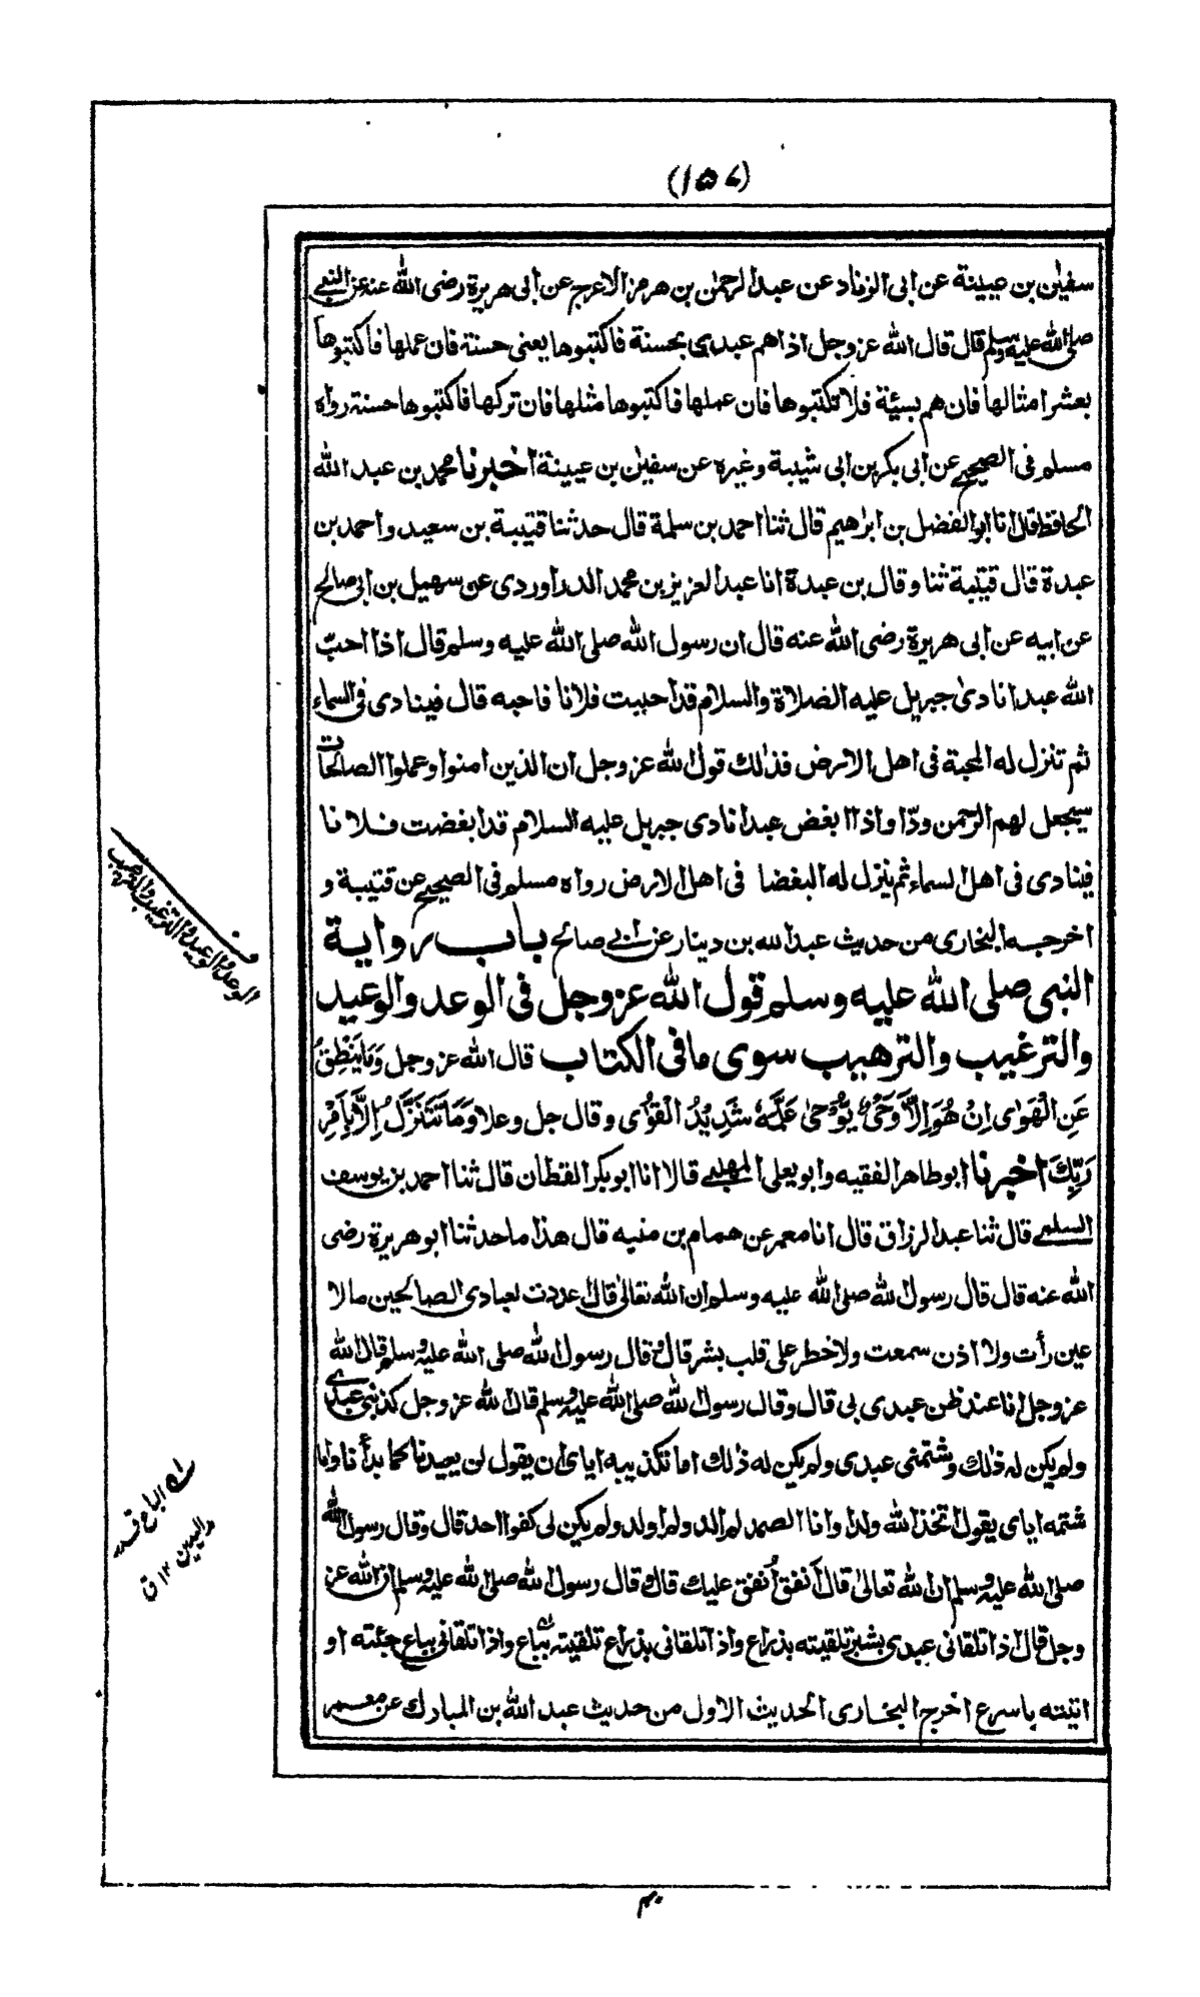 (١٥٧)
سفيٰن بن عيينة عن ابى الزناد عن عبد الرحمٰن بن هرمز الاعرج عن ابى هريرة رضى الله عنه عن النبى
صلى الله عليه وسلم قال قال الله عز وجل اذا هم عبدى بحسنة فاكتبوها يعنى حسنة فان عملها فاكتبوها
بعشر امثالها فان هم بسيئة فلا تكتبوها فان عملها فاكتبوها مثلها فان تركها فاكتبوها حسنة رواه
مسلم فى الصحيح عن ابى بكر بن ابى شيبة وغيره عن سفيٰن بن عيينة اخبرنا محمد بن عبد الله
الحافظ قال انا ابو الفضل بن ابرٰهيم قال ثنا احمد بن سلمة قال حدثنا قتيبة بن سعيد واحمد بن
عبدة قال قتيبة ثنا وقال بن عبدة انا عبد العزيز بن محمد الدراوردى عن سهيل بن ابى صالح
عن ابيه عن ابى هريرة رضى الله عنه قال ان رسول الله صلى الله عليه وسلم قال اذا احبّ
الله عبدا نادىٰ جبريل عليه الصلاة والسلام قد احببت فلانا فاحبه قال فينادى فى السماء
ثم تنزل له المحبة فى اهل الارض فذٰلك قول الله عز وجل ان الذين امنوا وعملوا الصالحات
سيجعل لهم الرحمن ودّا واذا ابغض عبدا نادى جبريل عليه السلام قد ابغضت فلانا
فينادى فى اهل السماء ثم ينزل له البغضا فى اهل الارض رواه مسلم فى الصحيح عن قتيبة و
اخرجه البخارى من حديث عبد الله بن دينار عن ابى صالح باب رواية
النبى صلى الله عليه وسلم قول الله عز وجل فى الوعد والوعيد
والترغيب والترهيب سوى ما فى الكتاب قال الله عز وجل وَمَا يَنْطِقُ
عَنِ الْهَوٰى اِنْ هُوَ اِلَّا وَحْىٌ يُّوْحٰى عَلَّمَهٗ شَدِيْدُ الْقُوٰى وقال جل وعلا وَمَا نَتَنَزَّلُ اِلَّا بِاَمْرِ
رَبِّكَ اخبرنا ابو طاهر الفقيه وابو يعلى المهلبى قالا انا ابو بكر القطان قال ثنا احمد بن يوسف
السلمى قال ثنا عبد الرزاق قال انا معمر عن همام بن منبه قال هذا ما حدثنا ابو هريرة رضى
الله عنه قال قال رسول الله صلى الله عليه وسلم ان الله تعالىٰ قال اعددت لعبادى الصالحين ما لا
عين رأت ولا اذن سمعت ولا خطر على قلب بشر قال وقال رسول الله صلى الله عليه وسلم قال الله
عز وجل انا عند ظن عبدى بى قال وقال رسول الله صلى الله عليه وسلم قال الله عز وجل كذبنى عبدى
ولم يكن له ذٰلك وشتمنى عبدى ولم يكن له ذٰلك اما تكذيبه اياى ان يقول لن يعيدنا كما بدأنا واما
شتمه اياى يقول اتخذ الله ولدا وانا الصمد لم الد ولم اولد ولم يكن لى كفوا احد قال وقال رسول الله
صلى الله عليه وسلم ان الله تعالىٰ قال أنفق أُنفق عليك قال وقال رسول الله صلى الله عليه وسلم ان الله عز
وجل قال اذا تلقانى عبدى بشبر تلقيته بذراع واذا تلقانى بذراع تلقيته بباع واذا تلقانى بباع جئته او
اتيته باسرع اخرج البخارى الحديث الاول من حديث عبد الله بن المبارك عن معمر
الوعد والوعيد والترغيب والترهيب
الباع قدر
اليدين ١٢ ق